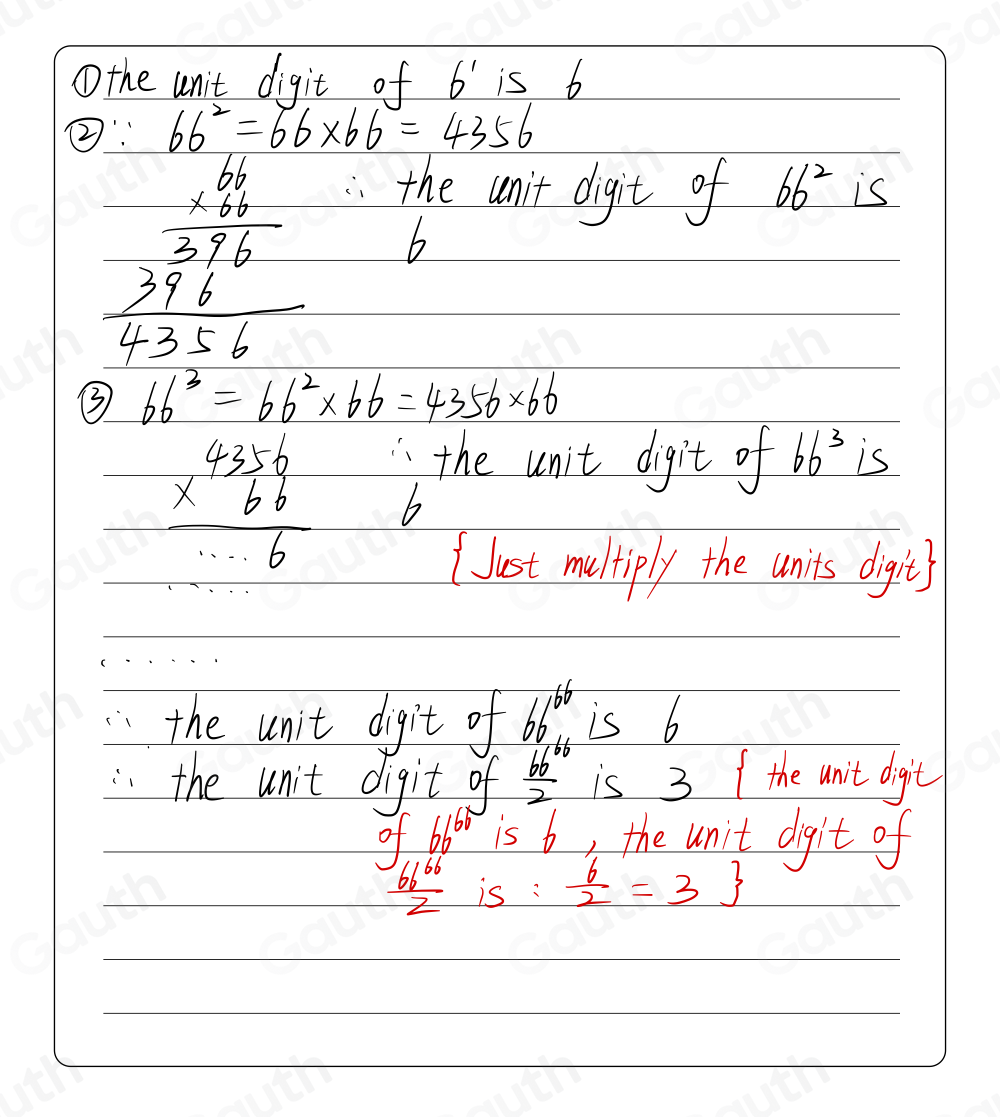 ① the unit digit of 6¹ is 6
② ∵ 66² = 66 × 66 = 4356
66
× 66
396
396
4356
∴ the unit digit of 66² is
6
③ 66³ = 66² × 66 = 4356 × 66
4356
× 66
.... 6
.....
∴ the unit digit of 66³ is
6
{Just multiply the units digit}
......
∴ the unit digit of 66⁶⁶ is 6
∴ the unit digit of 66⁶⁶/2 is 3 { the unit digit
of 66⁶⁶ is 6, the unit digit of
66⁶⁶/2 is : 6/2 = 3 }
Gauth